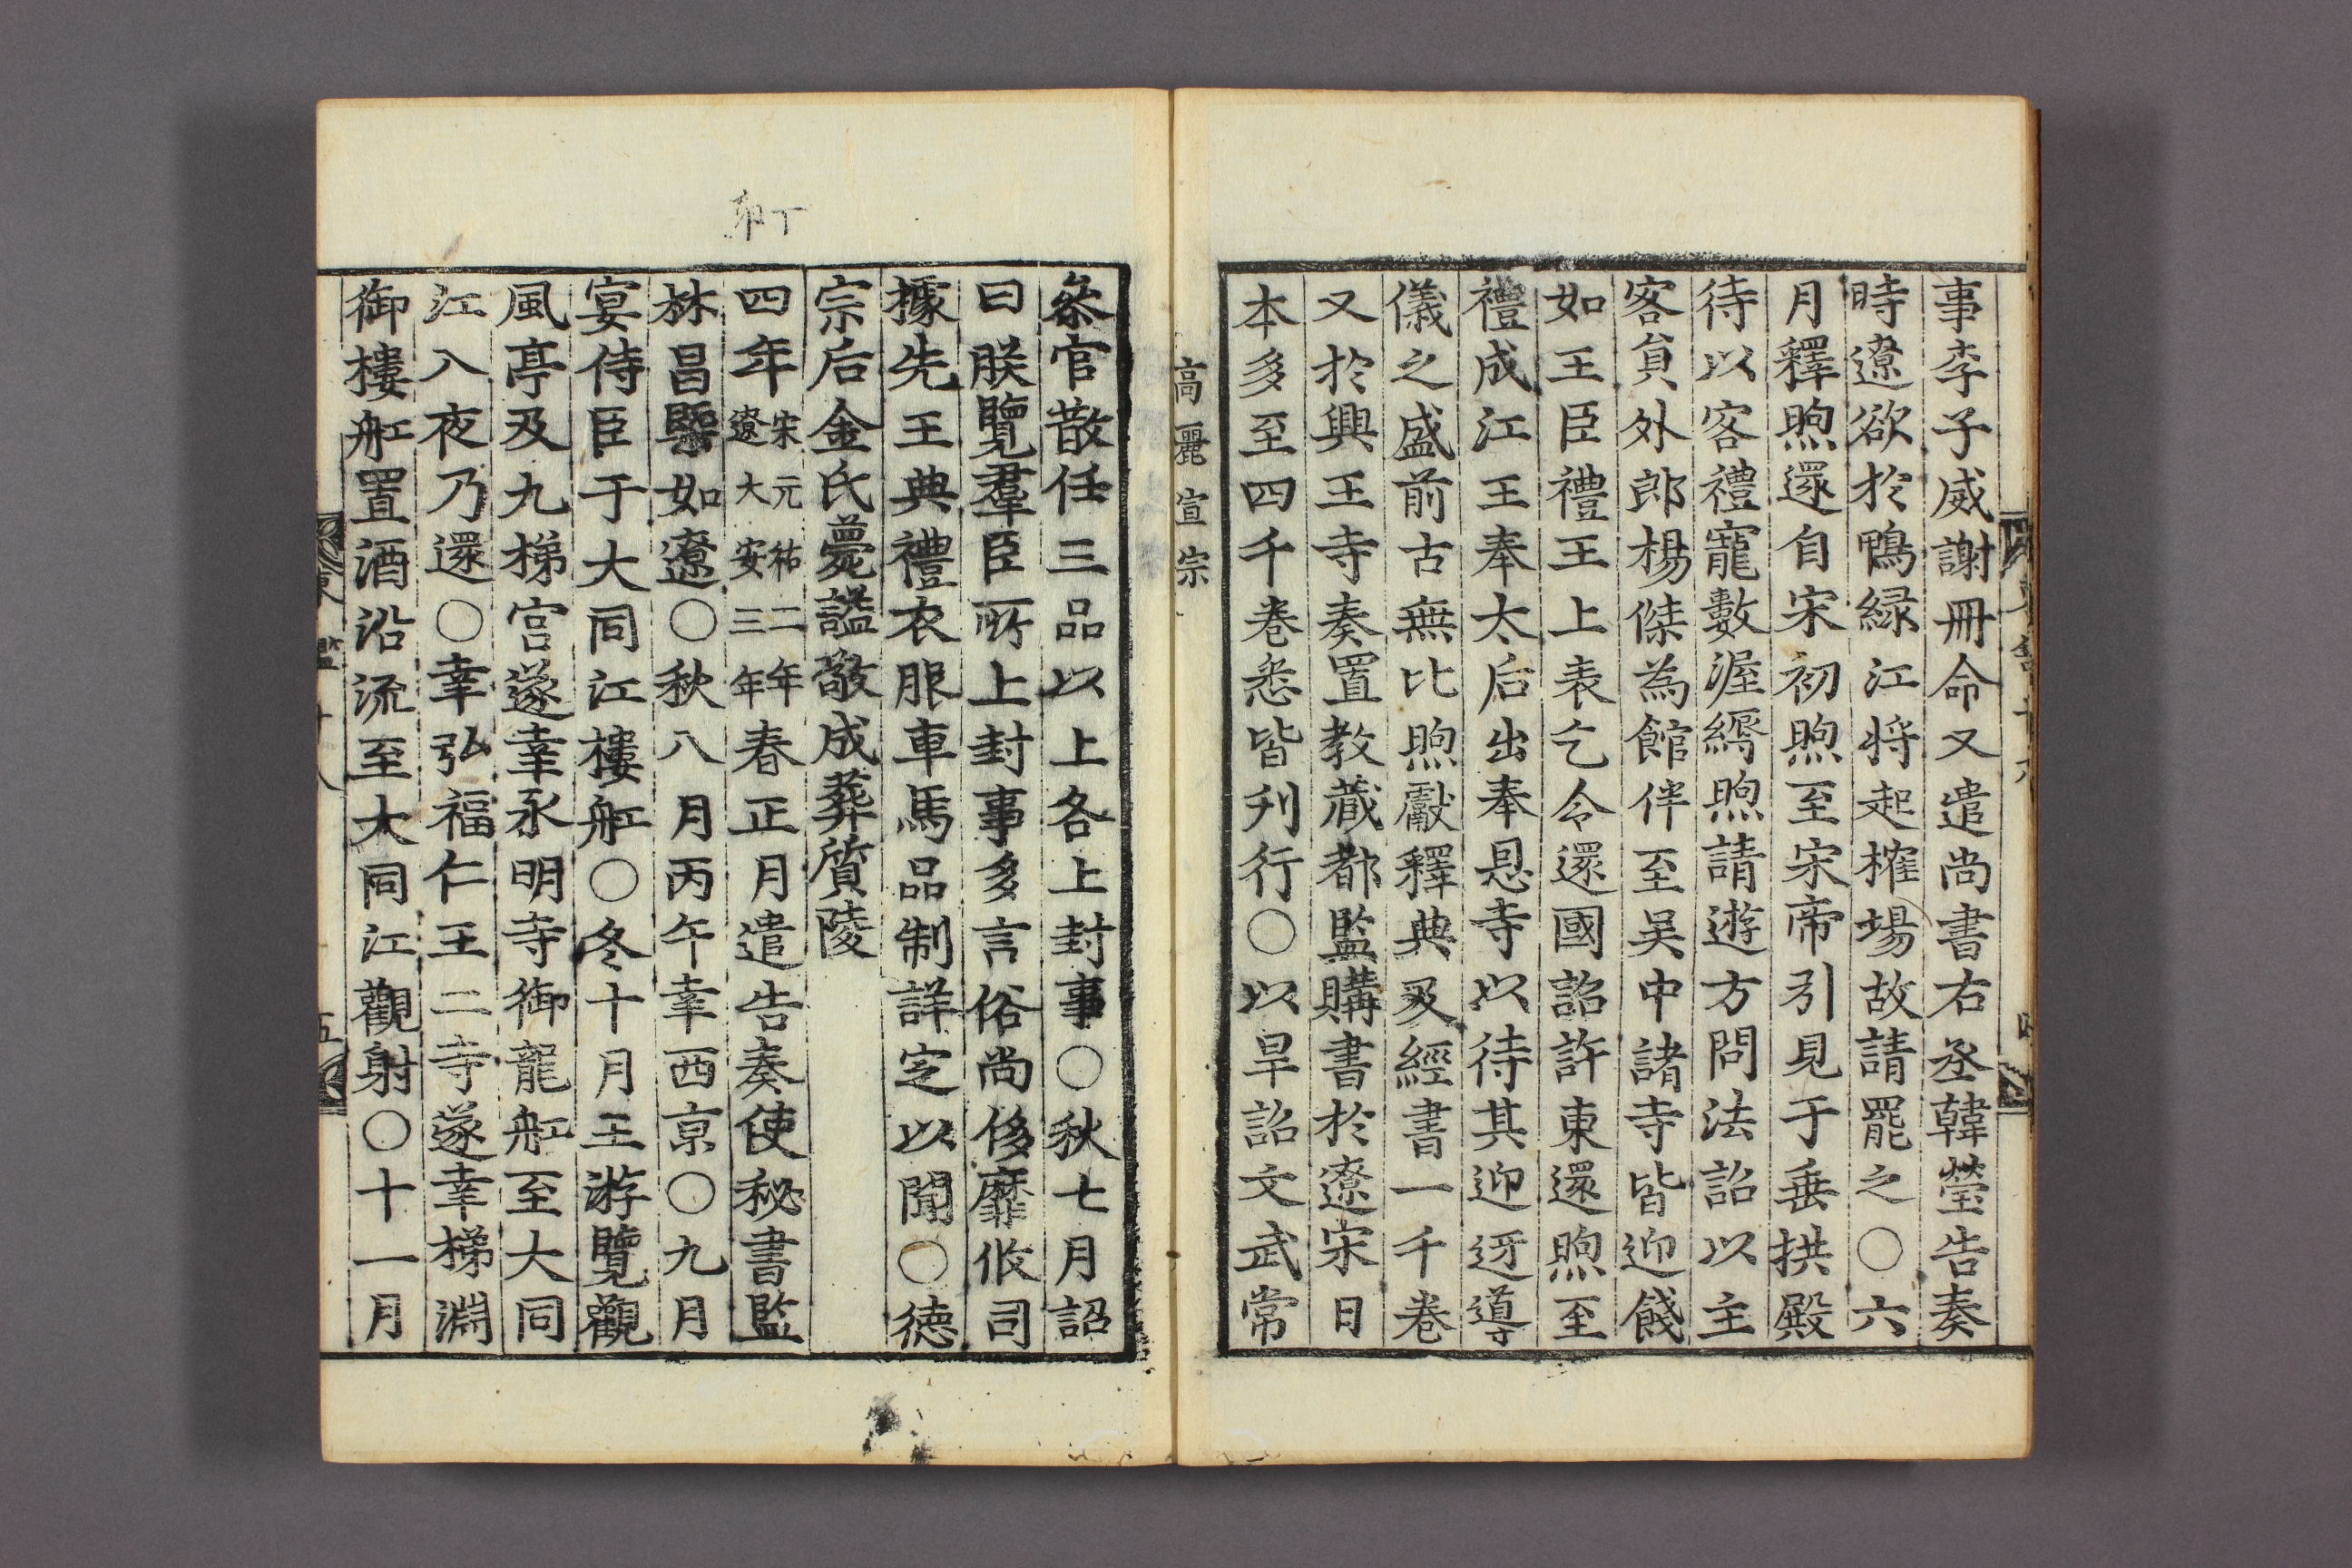 事李子威謝冊命又遣尚書右丞韓瑩告奏
時遼欲於鴨緑江將起榷場故請罷之○六
月釋煦還自宋初煦至宋帝引見于垂拱殿
待以客禮寵數渥縟煦請遊方問法詔以主
客貟外郎楊傑為館伴至吴中諸寺皆迎餞
如王臣禮王上表乞令還國詔許東還煦至
禮成江王奉太后出奉恩寺以待其迎迓導
儀之盛前古無比煦獻釋典及經書一千卷
又於興王寺奏置教藏都監購書於遼宋日
本多至四千卷悉皆刋行○以旱詔文武常
高麗宣宗
叅官散任三品以上各上封事○秋七月詔
曰朕覽羣臣所上封事多言俗尚侈靡攸司
據先王典禮衣服車馬品制詳定以聞○徳
宗后金氏薨謚敬成葬質陵
丁卯
四年宋元祐二年遼大安三年春正月遣告奏使秘書監
林昌槩如遼○秋八月丙午幸西京○九月
宴侍臣于大同江樓舡○冬十月王游覽觀
風亭及九梯宮遂幸永明寺御龍舡至大同
江入夜乃還○幸弘福仁王二寺遂幸梯淵
御樓舡置酒沿流至大同江觀射○十一月